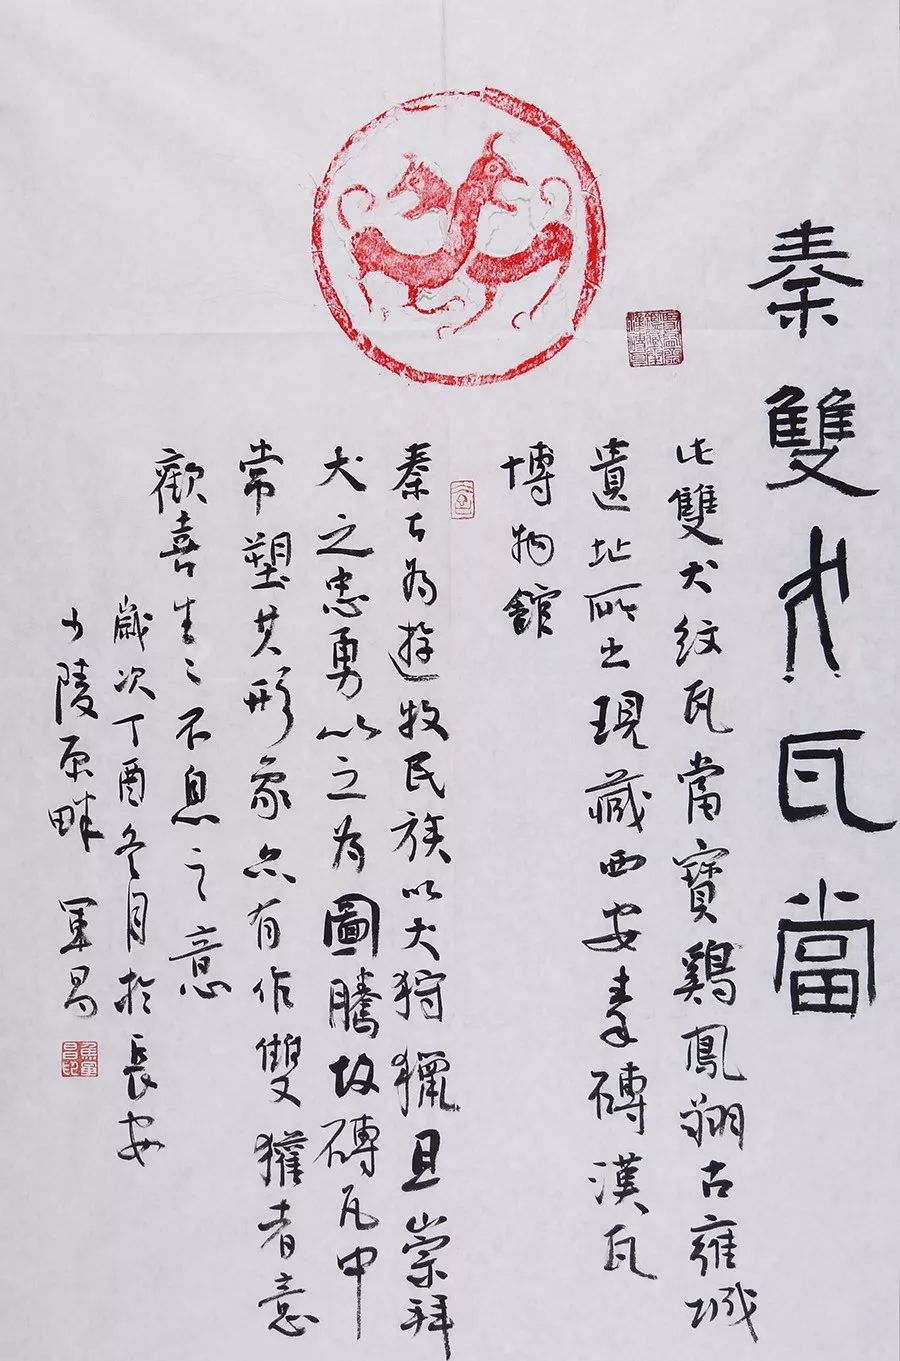 秦雙犬瓦當
此雙犬紋瓦當寶鷄鳳翔古雍城
遺址所出現藏西安秦磚漢瓦
博物館
秦古為遊牧民族以犬狩獵且崇拜
犬之忠勇以之為圖騰故磚瓦中
常塑其形象亦有作雙獾者意
歡喜生生不息之意
歲次丁酉冬月於長安
少陵原畔 軍昌
焦軍昌印